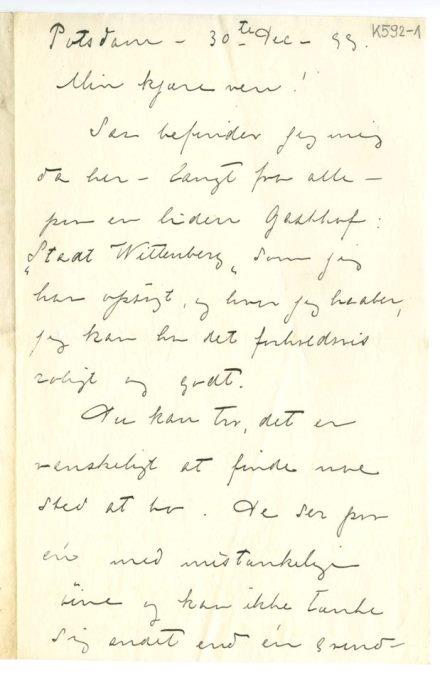 Potsdam – 30te Dec – 99.
K592-1
Min kjære ven!
Saa befinder jeg mig
da her – langt fra alle –
paa en liden Gasthof:
"Stadt Wittenberg" som jeg
har opsögt, og hvor jeg haaber,
jeg kan ha det forholdsvis
roligt og godt.
Du kan tro, det er
vanskeligt at finde noe
sted at bo. De ser paa
én med mistænkelige
öine og kan ikke tænke
sig andet end én grund–